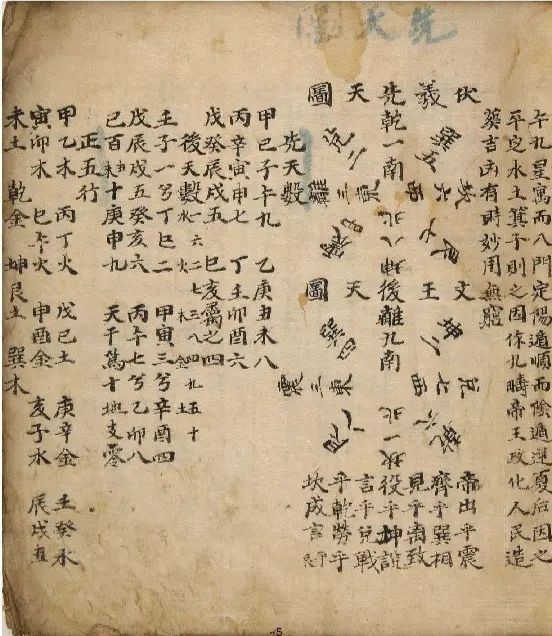 先天圖
午九星寓而八門定陽遁順而陰遁逆夏后因之
平定水土箕子則之因作九疇帝王政化人民造
葬吉凶有時妙用無窮
伏羲先天圖
乾一南
兌二
巽五
離三東
坎六西
艮七
坤八北
文王後天圖
離九南
巽四
坤二
震三東
兌七西
艮八
乾六
坎一北
帝出乎震
齊乎巽相
見乎离致
役乎坤說
言乎兌戰
乎乾勞乎
坎成言乎
先天數
甲己子午九 乙庚丑未八
丙辛寅申七 丁壬卯酉六
戊癸辰戌五 巳亥屬之四
後天數 水一六火二七木三八金四九土五十
壬子一兮丁巳二 甲寅三兮辛酉四
戊辰戌五癸亥六 丙午七兮乙卯八
己百丑未十庚申九 天干萬十地支零
正五行
甲乙木 丙丁火 戊己土 庚辛金 壬癸水
寅卯木 巳午火 申酉金 亥子水 辰戌丑
未土 乾金 坤艮土 巽木
5